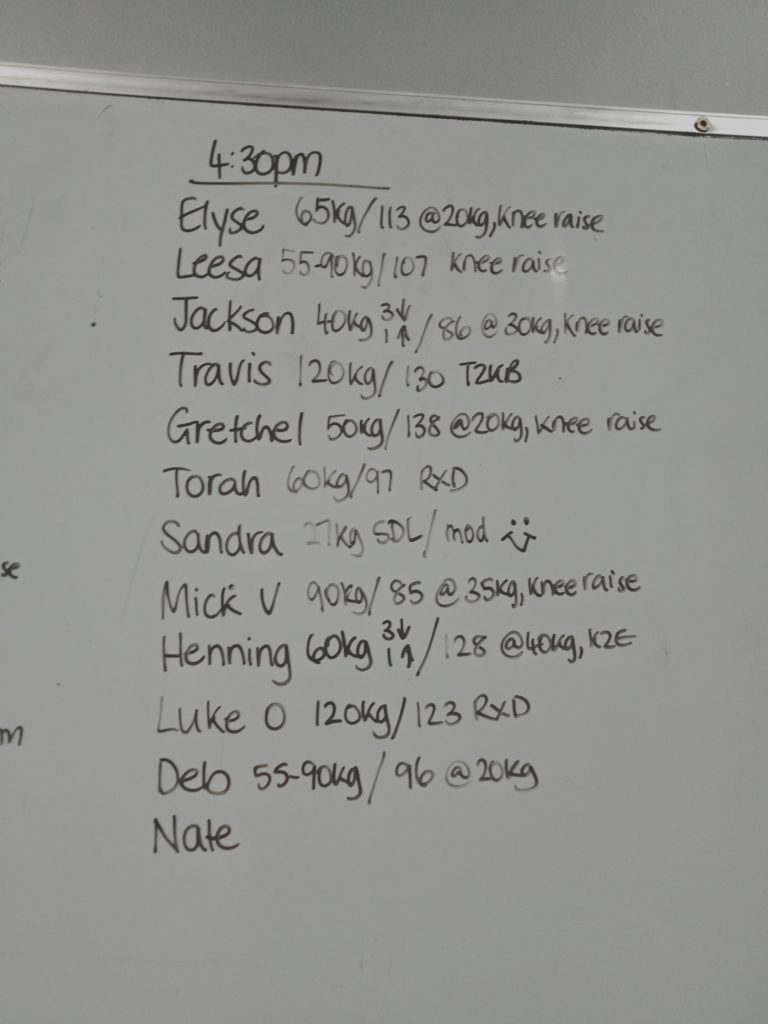 4:30pm
Elyse 65kg/113 @20kg, knee raise
Leesa 55-90kg/107 knee raise
Jackson 40kg 3↓ 1↑ /86 @ 30kg, knee raise
Travis 120kg/130 T2KB
Gretchel 50kg/138 @20kg, knee raise
Torah 60kg/97 RXD
Sandra 27kg SDL/mod
Mick V 90kg/85 @ 35kg, knee raise
Henning 60kg 3↓ 1↑ /128 @40kg, K2E
Luke O 120kg/123 RXD
Deb 55-90kg/96 @ 20kg
Nate
se
m